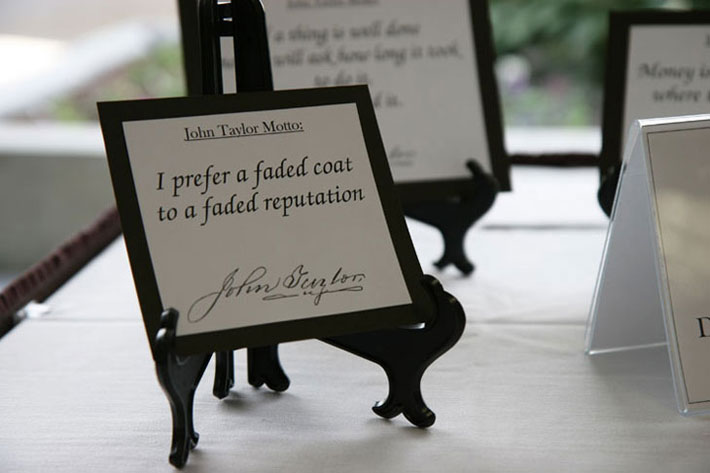 John Taylor Motto:
I prefer a faded coat
to a faded reputation
John Taylor.
a thing is well done
will ask how long it took,
to do it.
Money is
where
D